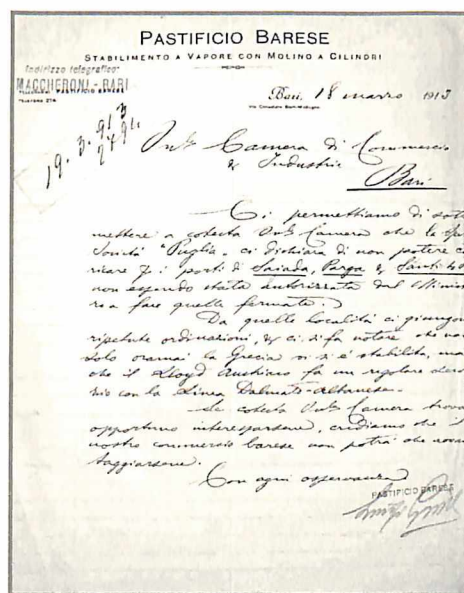 PASTIFICIO BARESE
STABILIMENTO A VAPORE CON MOLINO A CILINDRI
Indirizzo telegrafico:
MACCHERONI - BARI
Bari, 18 marzo 1913
19. 3. 913
Camera di Commercio
& Industria
Bari
Ci permettiamo di sotto
mettere a cotesta Camera che la
Società "Puglia" ci dichiara di non potere ca
ricare i porti di Saiada, Parga &
non essendo stata autorizzata dal Ministe
ro a fare quelle fermate.
Da quelle località ci giungono
ripetute ordinazioni, & ci si fa notare che non
solo oramai la Grecia vi si è stabilita, ma
che il Lloyd Austriaco fa un regolare
con la Linea Dalmato-Albanese.
Se cotesta Camera
opportuno interessarsene, crediamo che il
nostro commercio barese non potrà che
taggiarsene.
Con ogni osservanza
PASTIFICIO BARESE